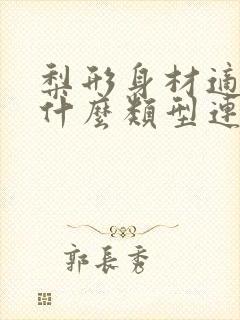 梨形身材適
什麼類型連
郭長秀